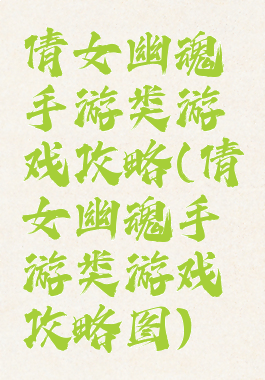 倩女幽魂
手游类游
戏攻略(倩
女幽魂手
游类游戏
攻略图)